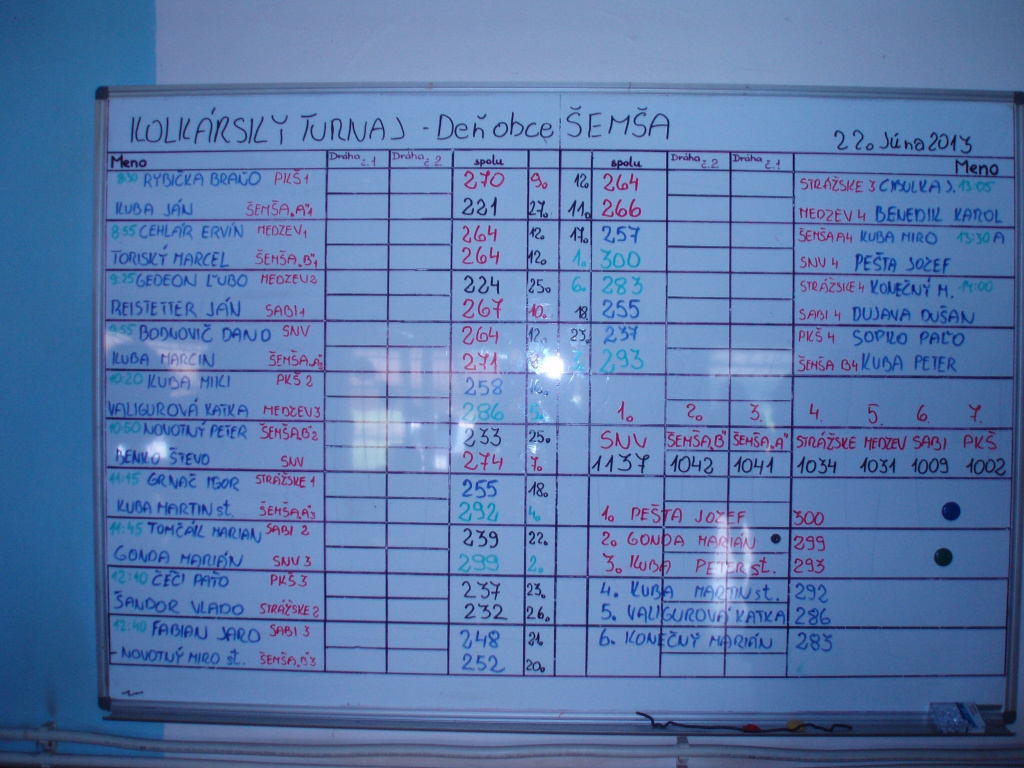 KOLKÁRSKÝ TURNAJ - Deň obce ŠEMŠA
22. Júna 2013
Meno Dráha č.1 Dráha č.2 spolu spolu Dráha č.2 Dráha č.1 Meno
8:30 RYBIČKA BRAŇO PKŠ 1 270 9. 12. 264 STRÁŽSKE 3 CIBULKA J. 13:05
KUBA JÁN ŠEMŠA „A“1 221 27. 11. 266 MEDZEV 4 BENEDIK KAROL
8:55 CEHLÁR ERVÍN MEDZEV 1 264 12. 17. 257 ŠEMŠA A4 KUBA MIRO 13:30 A
TORISKÝ MARCEL ŠEMŠA „B“1 264 12. 1. 300 SNV 4 PEŠTA JOZEF
9:25 GEDEON ĽUBO MEDZEV 2 224 25. 6. 283 STRÁŽSKE 4 KONEČNÝ M. 14:00
REISTETTER JÁN SABI 1 267 10. 18 255 SABI 4 DUJAVA DUŠAN
9:55 BODNOVIČ DANO SNV 264 12. 23. 237 PKŠ 4 SOPKO PAĽO
KUBA MARCIN ŠEMŠA „A“ 271 293 ŠEMŠA B4 KUBA PETER
10:20 KUBA MIKI PKŠ 2 258 16.
VALIGUROVÁ KATKA MEDZEV 3 286 5. 1. 2. 3. 4. 5. 6. 7.
10:50 NOVOTNÝ PETER ŠEMŠA „B“2 233 25. SNV ŠEMŠA „B“ ŠEMŠA „A“ STRÁŽSKE MEDZEV SABI PKŠ
BENKO ŠTEVO SNV 274 7. 1137 1042 1041 1034 1031 1009 1002
11:15 GRNAČ IGOR STRÁŽSKE 1 255 18.
KUBA MARTIN st. ŠEMŠA „A“3 292 4. 1. PEŠTA JOZEF 300
11:45 TOMČÁK MARIAN SABI 2 239 22. 2. GONDA MARIÁN 299
GONDA MARIÁN SNV 3 299 2. 3. KUBA PETER st. 293
12:10 ČEČI PAŤO PKŠ 3 237 23. 4. KUBA MARTIN st. 292
ŠANDOR VLADO STRÁŽSKE 2 232 26. 5. VALIGUROVÁ KATKA 286
12:40 FABIAN JARO SABI 3 248 21. 6. KONEČNÝ MARIÁN 283
- NOVOTNÝ MIRO st. ŠEMŠA „B“3 252 20.